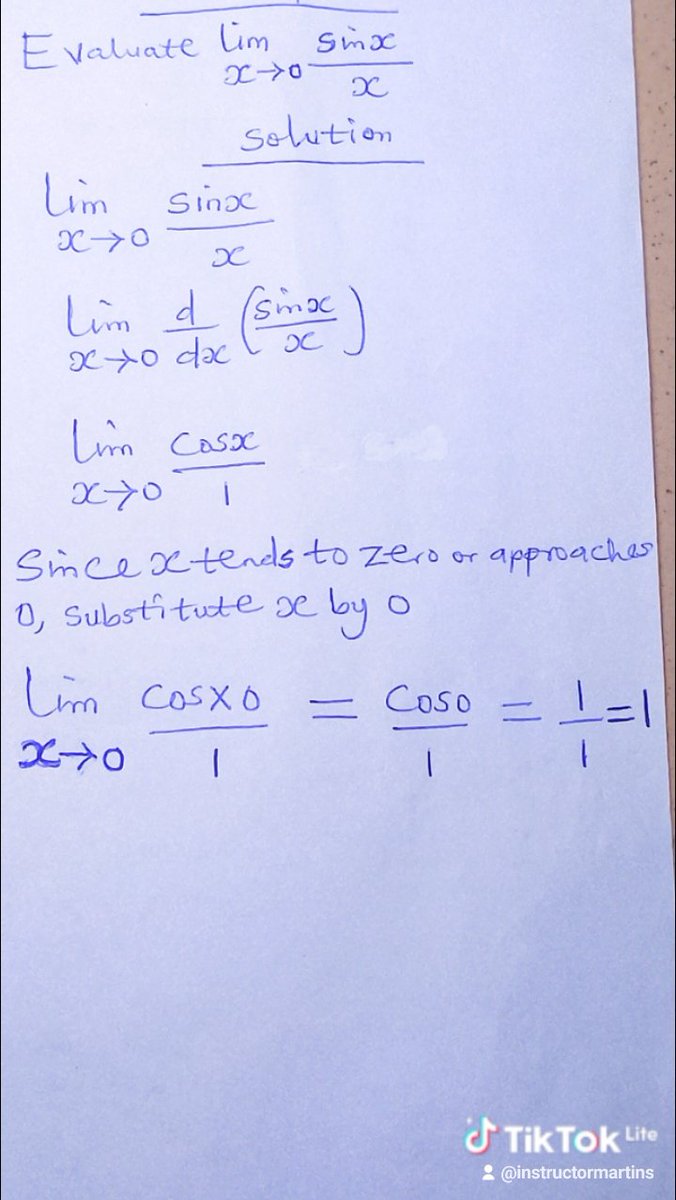 Evaluate lim sinx
x→0 x
solution
Lim sinx
x→0 x
Lim d (sinx)
x→0 dx x
Lim cosx
x→0 1
Since x tends to zero or approaches
0, substitute x by 0
Lim cosx0 = cos0 = 1 = 1
x→0 1 1 1
TikTok Lite
@instructormartins